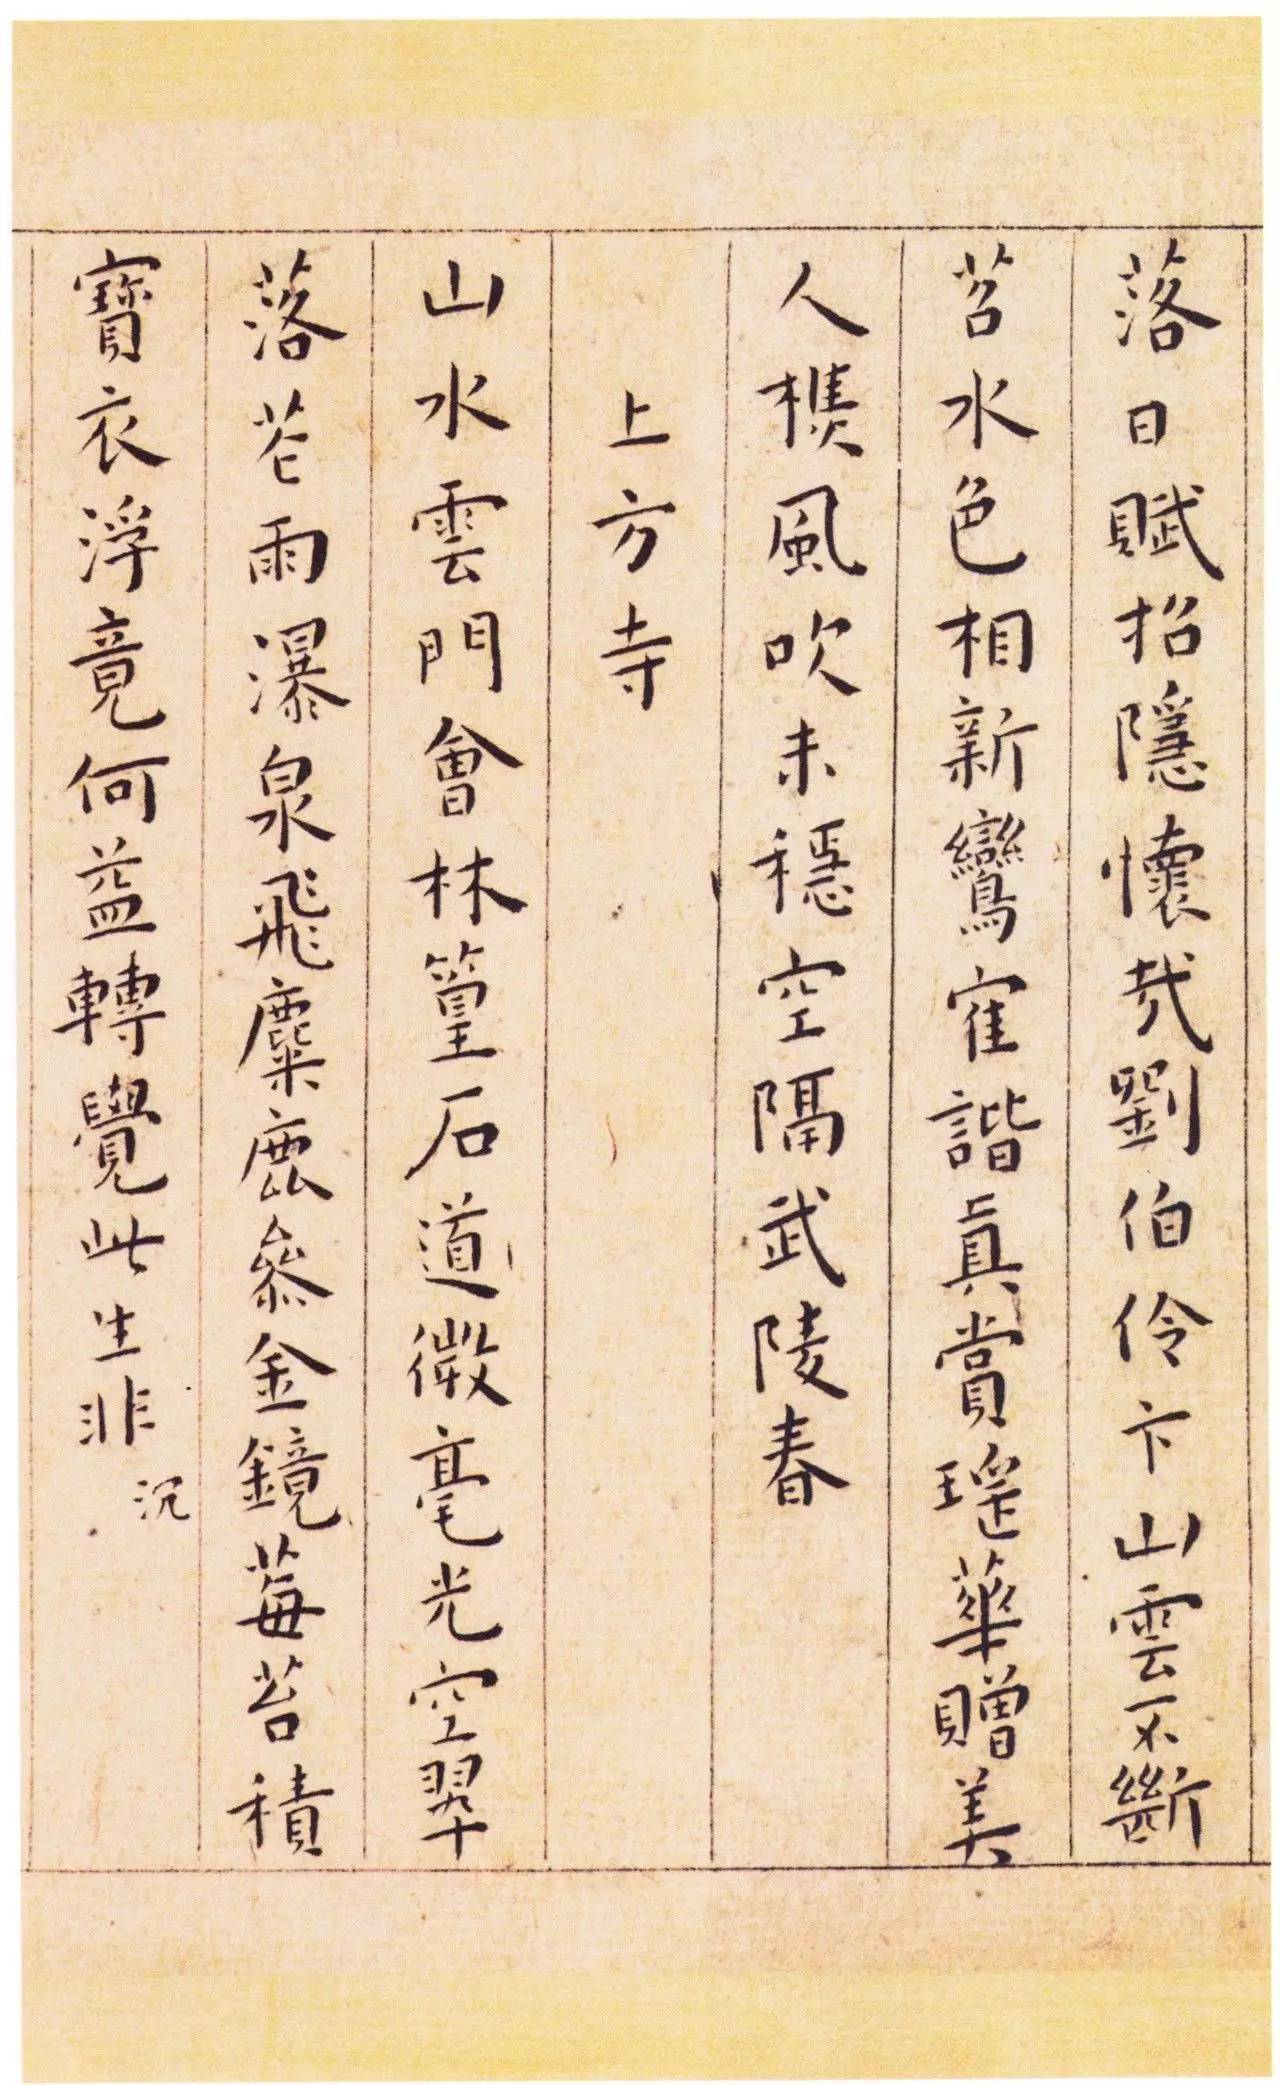 落日賦招隱懷哉劉伯伶卞山雲不斷
苕水色相新鸞寉諧真賞瑶華贈美
人樵風吹未穩空隔武陵春
上方寺
山水雲門會林篁石道微毫光空翠
落花雨瀑泉飛麋鹿叅金鏡莓苔積
寶衣浮竟何益轉覺此生非 沉